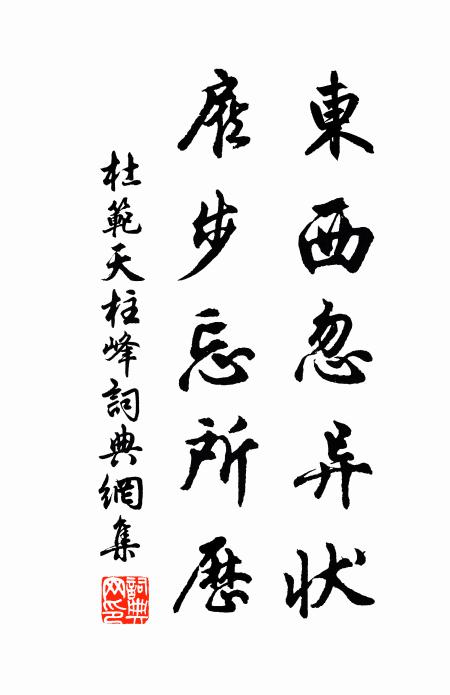 東西忽异状
步忘所歷
杜範天柱峰詞典網集
詞典网印